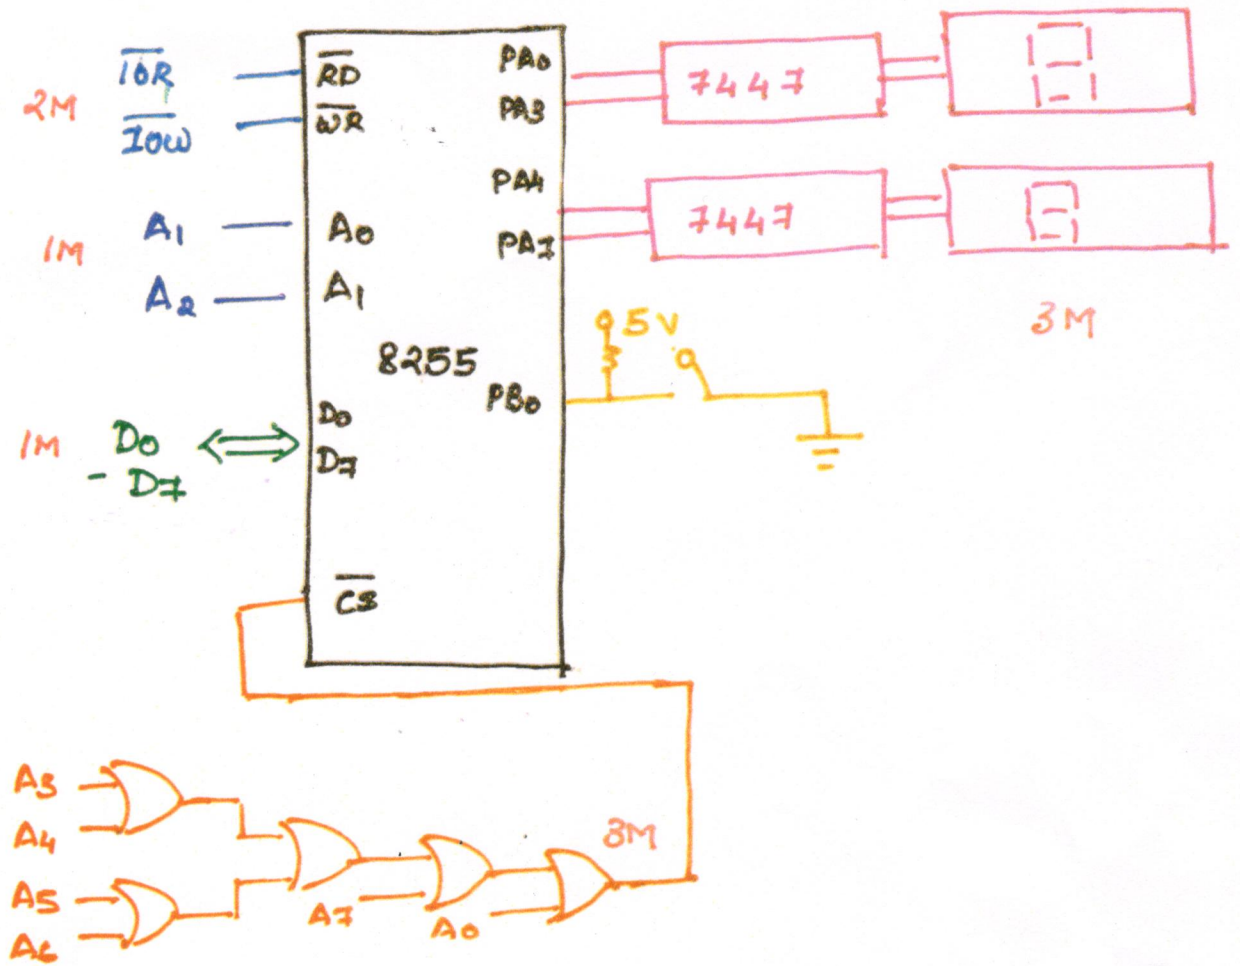 IOR
2M
IOW
A1
1M
A2
1M
D0
- D7
RD
WR
A0
A1
8255
D0
D7
CS
PA0
PA3
PA4
PA7
PB0
7447
8
7447
8
3M
5V
A3
A4
A5
A6
A7
A0
3M